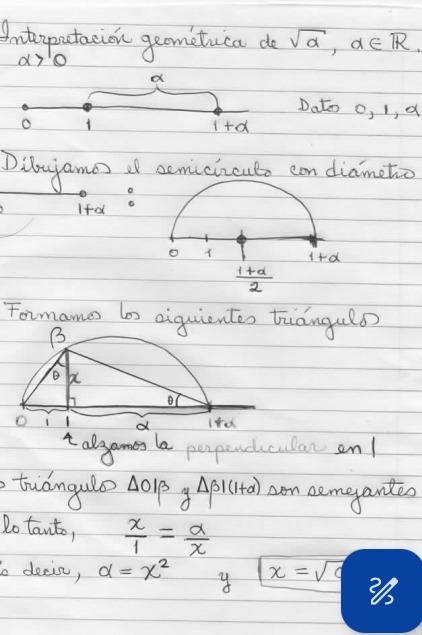 Interpretación geométrica de √α, α ∈ ℝ.
α > 0
α
0 1 1+α Datos 0, 1, α
Dibujamos el semicírculo con diámetro
1+α :
0 1 1+α
1+α
2
Formamos los siguientes triángulos
β
θ x θ
0 1 1 α 1+α
alzamos la perpendicular en 1
triángulos Δ01β y Δβ1(1+α) son semejantes
lo tanto, x/1 = α/x
decir, α = x² y x = √